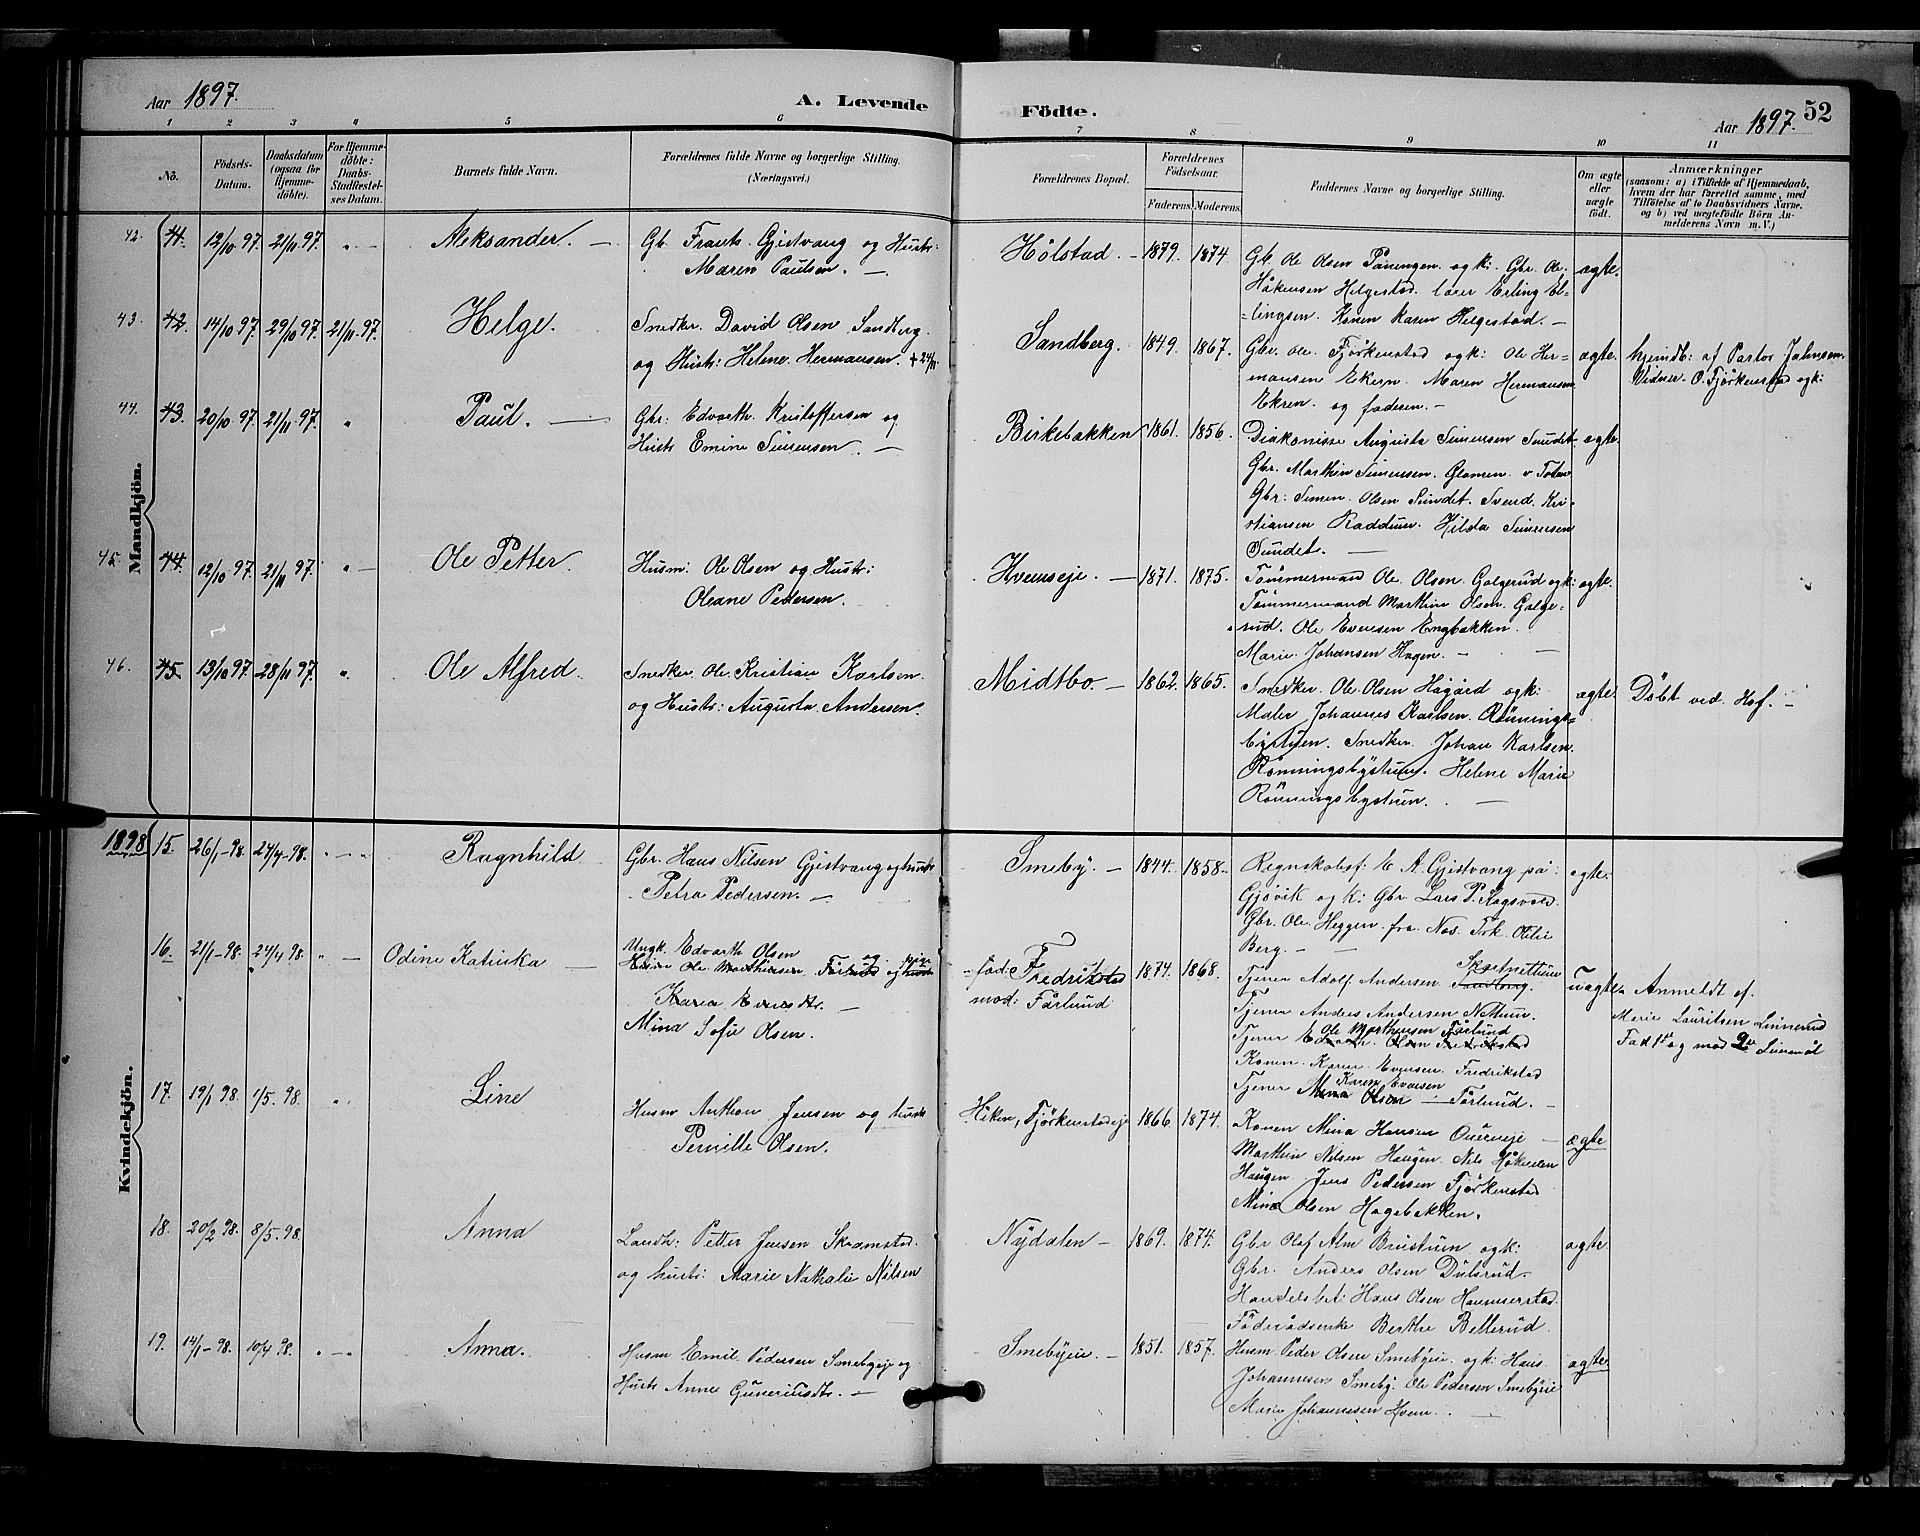 Aar 1897. A. Levende Födte. Aar 1897. 52
1 2 3 4 5 6 7 8 9 10 11
No.
Födsels-
Datum.
Daabsdatum
(ogsaa for
Hjemme-
döbte).
For Hjemme-
döbte:
Daabs-
Stadfæstel-
ses Datum.
Barnets fulde Navn.
Forældrenes fulde Navne og borgerlige Stilling.
(Næringsvei.)
Forældrenes Bopæl.
Forældrenes
Födselsaar.
Faderens. Moderens.
Faddernes Navne og borgerlige Stilling.
Om ægte
eller
uægte
födt.
Anmærkninger
(saasom: a) i Tilfælde af Hjemmedaab,
hvem der har forrettet samme, med
Tilföielse af to Daabsvidners Navne,
og b) ved uægtefödte Börn An-
melderens Navn m. V.)
Mandkjön.
42. 41. 12/10 97. 21/11 97. Aleksander. Gb. Frants Gjestvang og Hustr:
Maren Paulsen.
Hölstad. 1879. 1874. Gb. Ole Olsen Panengen og k: Gbr. Ole
Håkensen Helgestad. lærer Erling El-
lingsen. Konen Karen Helgestad. ægte.
43. 42. 14/10 97. 29/10 97. 21/11 97. Helge. Snedker. David Olsen Sandberg.
og Hustr: Helene Hermansen. + 24/11
Sandberg. 1849. 1867. Gbr. Ole Fjörkenstad og k: Ole Her-
mansen Ekern. Maren Hermansen
Ekren. og faderen. ægte. hjemdb: af Pastor Johnsen.
Vidner O. Fjörkenstad og k:
44. 43. 20/10 97. 21/11 97. Paul. Gbr: Edvarth Kristoffersen og
Hustr Emine Simensen.
Birkebakken 1861. 1856. Diakonisse Augusta Simensen Sundet. ægte.
Gbr. Marthin Simensen. Glomen. v Toten
Gbr: Simen Olsen Sundet. Svend Kri-
stiansen Raddum. Hilda Simensen
Sundet.
45. 44. 12/10 97. 21/11 97. Ole Petter. Husm: Ole Olsen og Hustr:
Oleane Pedersen.
Hvemseje. 1871. 1875. Tömmermand Ole Olsen Galgerud og k: ægte.
Tömmermand Marthin Olsen. Galge-
rud. Ole Evensen Engbakken.
Marie Johansen Hagen.
46. 45. 13/10 97. 28/11 97. Ole Alfred. Snedker Ole Kristian Karlsen
og Hustr: Augusta Andersen.
Midtbo. 1862. 1865. Snedker. Ole Olsen Hågård og k: ægte. Döbt ved Hof.
Maler Johannes Karlsen. Rönnings-
bystuen. Snedker. Johan Karlsen.
Rönningsbystuen. Helene Marie
Rönningsbystuen.
Kvindekjön.
1898 15. 26/1-98. 24/4-98. Ragnhild Gbr. Hans Nilsen Gjestvang og hustr
Petra Pedersen.
Smeby. 1844. 1858. Regnskabsf: E A. Gjestvang på
Gjövik og k: Gbr Lars P. Kagsvold.
Gbr. Ole Heggen fra Næs. Frk. Otilie
Berg. ægte.
16. 21/1-98. 24/4 98. Odine Katinka Ungk. Edvarth Olsen
Ole Marthinsen Fårlund og
Karen Evensdtr.
Mina Sofie Olsen.
fad: Fredrikstad
mod: Fårlund
1874. 1868. Tjener Adolf Andersen Sandberg.
Tjener Anders Andersen Nettum.
Ole Marthinsen Fårlund
Tjener Edvarth Olsen Fredrikstad
Konen Karen Evensen Fredrikstad
Karen Evensen
Tjener Mina Olsen Fårlund.
uægte Anmeldt af.
Marie Lauritsen Linnerud
Fad 1ste og mod 2den Leiermål
17. 19/1 98. 1/5. 98. Line Husm Anthon Jensen og hustr
Pernille Olsen.
Höken, Fjörkenstadeje 1866. 1874. Konen Mina Hansen Overeje
Marthin Nilsen Haugen. Nils Håkensen
Haugen Jens Pedersen Fjörkenstad
Mina Olsen Hagebakken. ægte
18. 20/2 98. 8/5. 98. Anna Landh: Petter Jensen Skramstad
og hustr: Marie Nathalie Nilsen
Nydalen 1869. 1874. Gbr Olaf Alm Brustuen og k:
Gbr. Anders Olsen Dulsrud
Handelsbet: Hans Olsen Hammerstad.
Föderådsenke Berthe Bellerud. ægte
19. 14/1-98. 10/4 98. Anna. Husm Emil Pedersen Smebyeje og
Hustr Anne Guneriusdtr.
Smebyeie. 1851. 1857. Husm. Peder Olsen Smebyeie og k: Hans
Johannesen Smeby. Ole Pedersen Smebyeie
Marie Johannesen Hvem. ægte